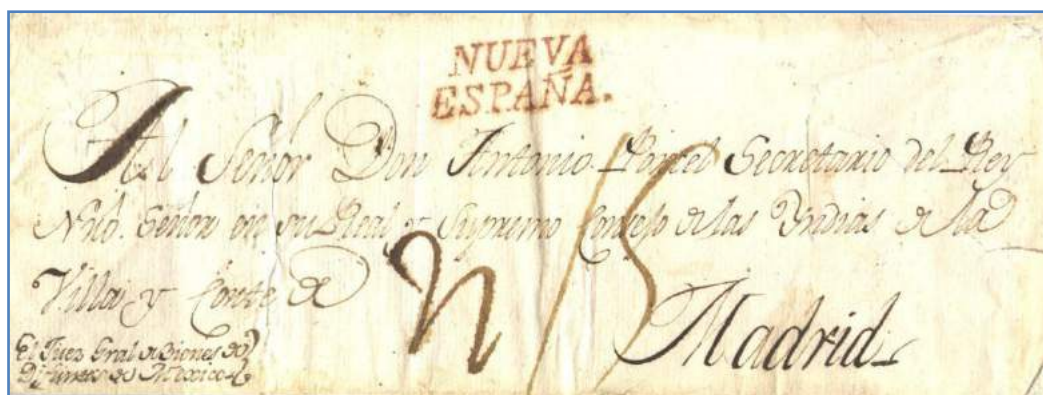 NUEVA
ESPAÑA.
Al Señor Don Antonio Porcel Secretario del Rey
Nrō. Señor en su Real y Supremo Consejo de las Yndias de la
Villa y Corte de
Madrid
El Juez Gral de Bienes de
Difuntos de Mexico